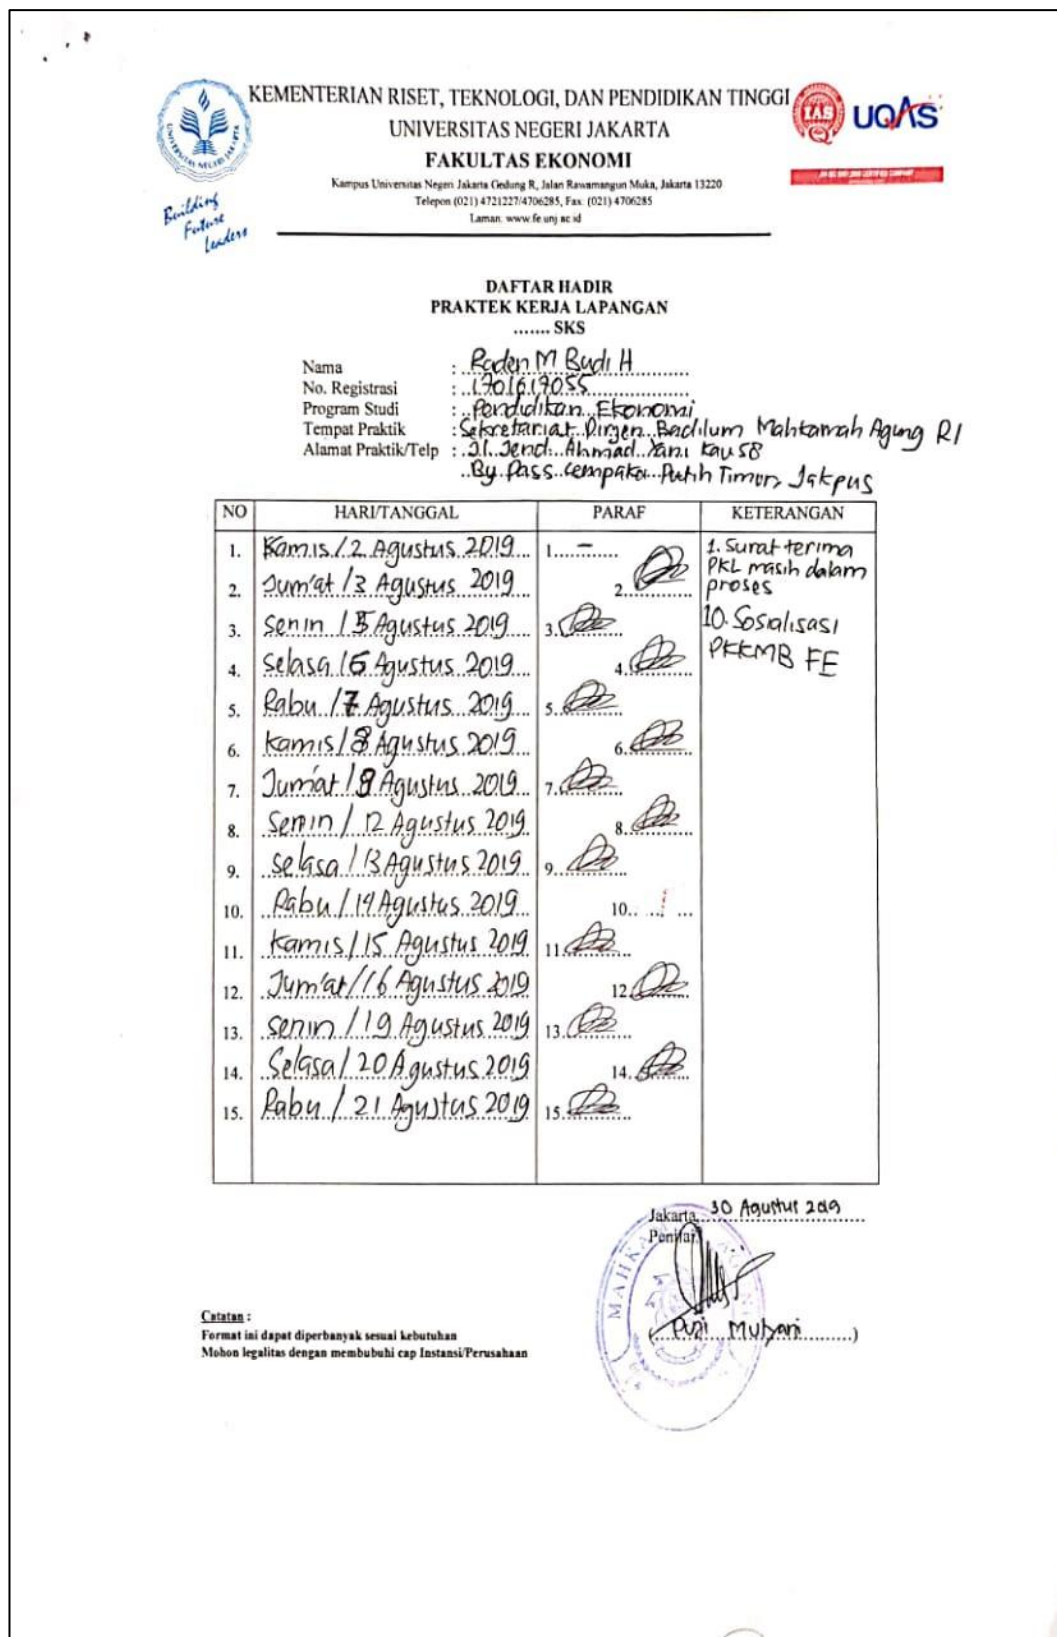 KEMENTERIAN RISET, TEKNOLOGI, DAN PENDIDIKAN TINGGI
UNIVERSITAS NEGERI JAKARTA
FAKULTAS EKONOMI
Kampus Universitas Negeri Jakarta Gedung R, Jalan Rawamangun Muka, Jakarta 13220
Telepon (021) 4721227/4706285, Fax: (021) 4706285
Laman: www.fe.unj.ac.id
UNIVERSITAS NEGERI JAKARTA
Building
Future
Leaders
IAS
UQAS
DAFTAR HADIR
PRAKTEK KERJA LAPANGAN
....... SKS
Nama : Raden M Budi H
No. Registrasi : 1701617055
Program Studi : Pendidikan Ekonomi
Tempat Praktik : Sekretariat Dirjen Badilum Mahkamah Agung RI
Alamat Praktik/Telp : Jl. Jend. Ahmad Yani Kav 58
By Pass Cempaka Putih Timur, Jakpus
NO HARI/TANGGAL PARAF KETERANGAN
1. Kamis / 2 Agustus 2019 1. - 1. Surat terima
PKL masih dalam
proses
2. Jum'at / 3 Agustus 2019 2.
3. Senin / 5 Agustus 2019 3. 10. Sosialisasi
PKKMB FE
4. Selasa / 6 Agustus 2019 4.
5. Rabu / 7 Agustus 2019 5.
6. Kamis / 8 Agustus 2019 6.
7. Jum'at / 9 Agustus 2019 7.
8. Senin / 12 Agustus 2019 8.
9. Selasa / 13 Agustus 2019 9.
10. Rabu / 14 Agustus 2019 10.
11. Kamis / 15 Agustus 2019 11.
12. Jum'at / 16 Agustus 2019 12.
13. Senin / 19 Agustus 2019 13.
14. Selasa / 20 Agustus 2019 14.
15. Rabu / 21 Agustus 2019 15.
Jakarta, 30 Agustus 2019
Penilai,
(Puji Mulyani)
Catatan :
Format ini dapat diperbanyak sesuai kebutuhan
Mohon legalitas dengan membubuhi cap Instansi/Perusahaan